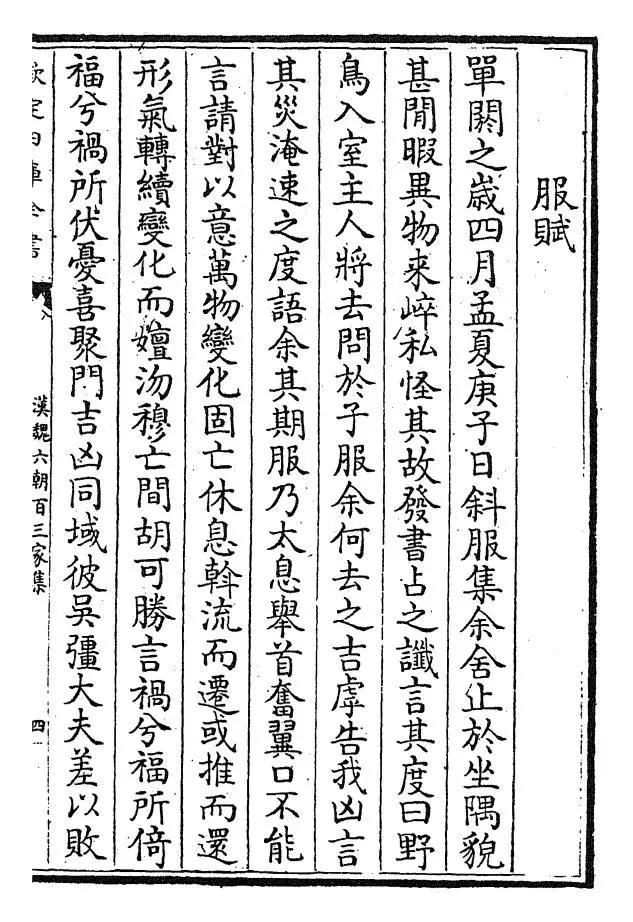 服賦
單閼之歲四月孟夏庚子日斜服集余舍止於坐隅貌
甚閒暇異物來崪私怪其故發書占之讖言其度曰野
鳥入室主人將去問於子服余何去之吉虖告我凶言
其災淹速之度語余其期服乃太息舉首奮翼口不能
言請對以意萬物變化固亡休息斡流而遷或推而還
形氣轉續變化而嬗沕穆亡間胡可勝言禍兮福所倚
福兮禍所伏憂喜聚門吉凶同域彼吳彊大夫差以敗
欽定四庫全書
漢魏六朝百三家集
四